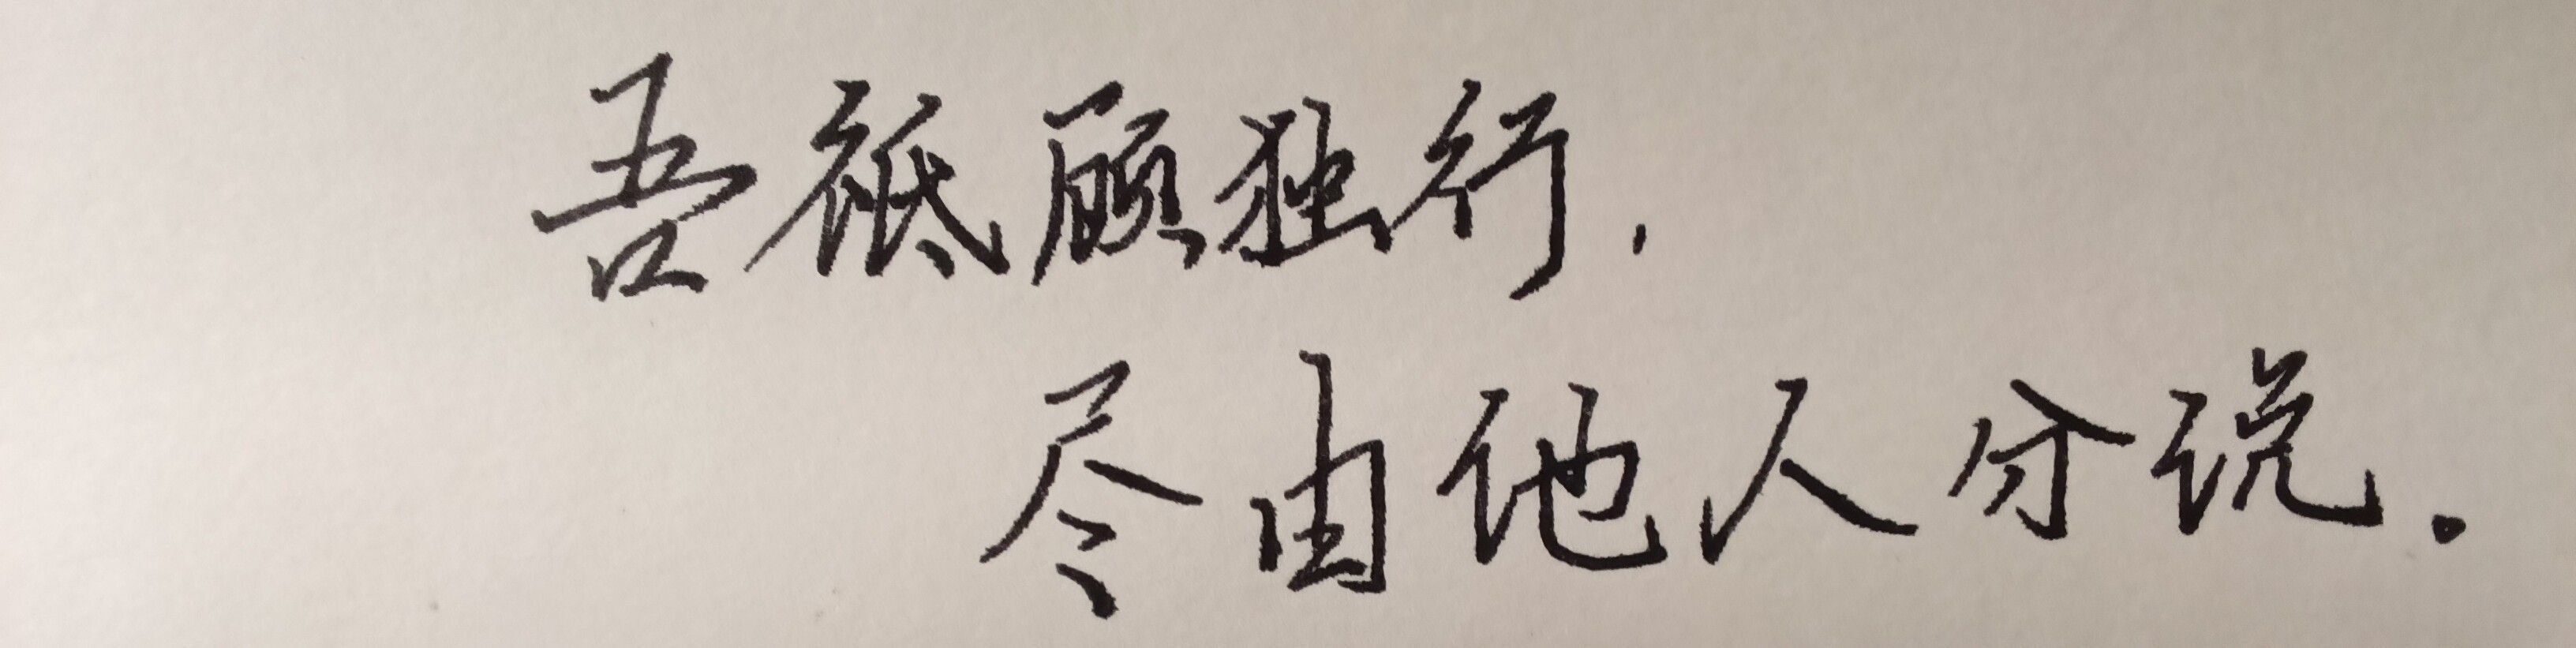 吾祗顾独行.
尽由他人分说.